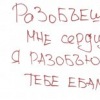 РОЗОБЬЕШ
МНЕ СЕРДЦ
Я РАЗОБЬЮ
ТЕБЕ ЕБАЛ